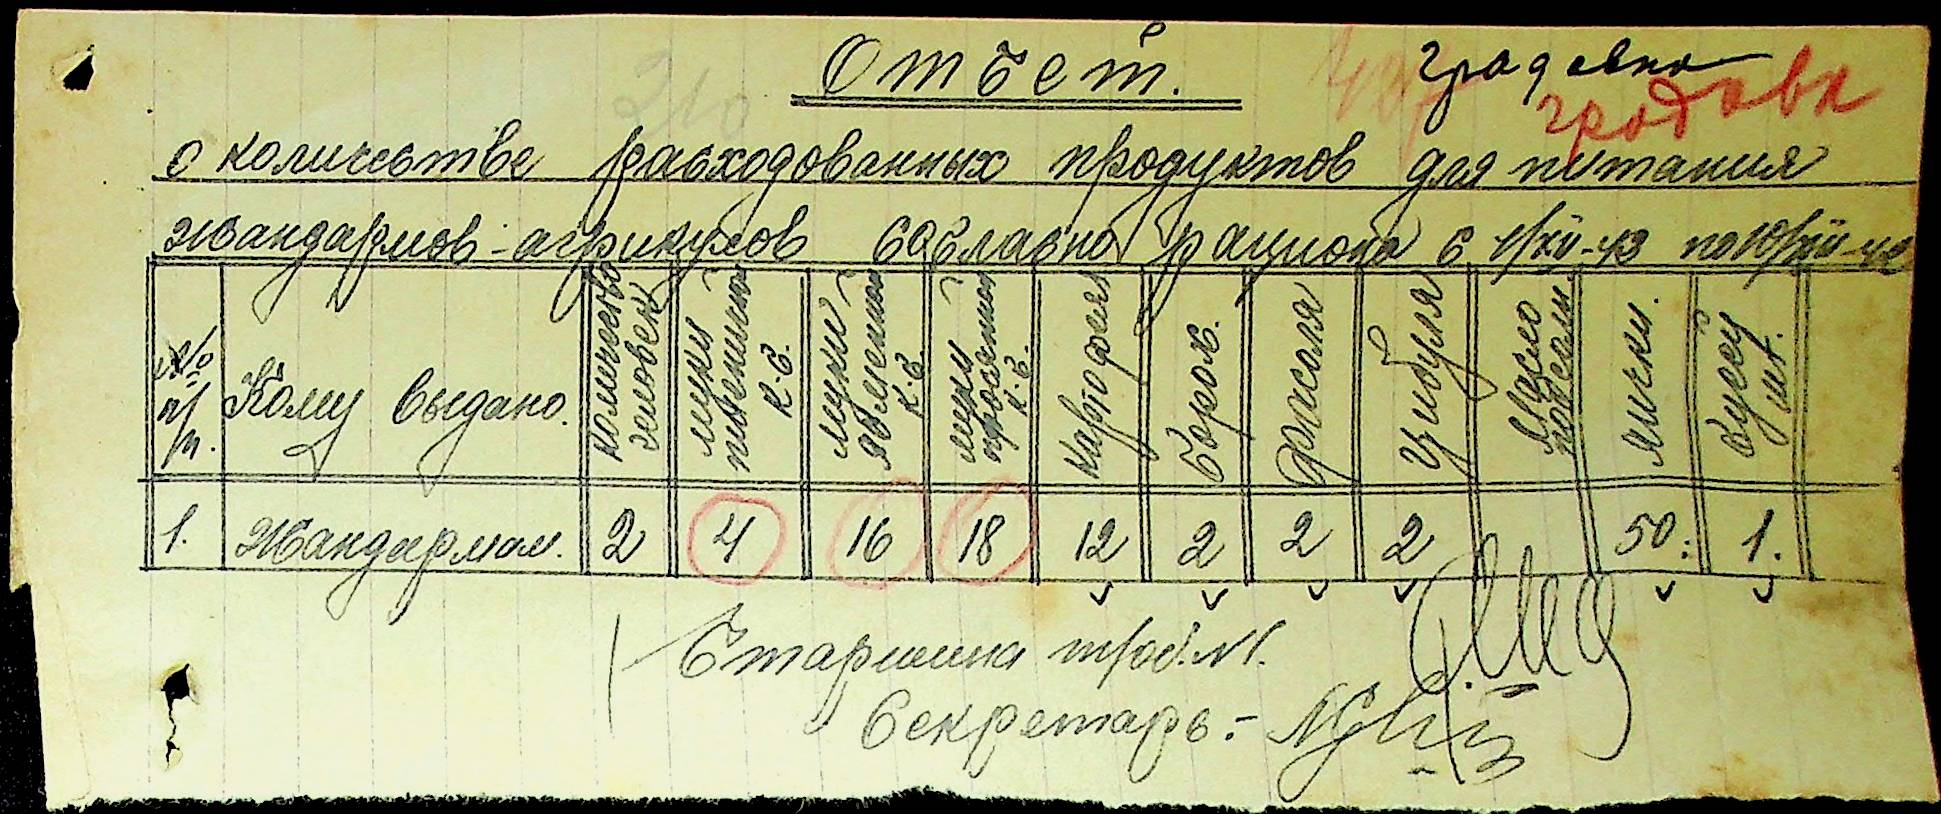 Отчет.
градовка
градовка
210
о количестве расходованных продуктов для питания
жандармов-агрикулов согласно рациона с 1/XII-43 по 10/XII-43
№№ п/п. | Кому выдано. | количество человек | муки пшеничной к-г. | муки ячменной к-г | муки просяной к-г. | картофеля | горох. | фасоля | цибуля | масло подсолн | яички. | куску шт.
1. | Жандармам. | 2 | 4 | 16 | 18 | 12 | 2 | 2 | 2 | | 50: | 1.
Старшина
Секретарь:-